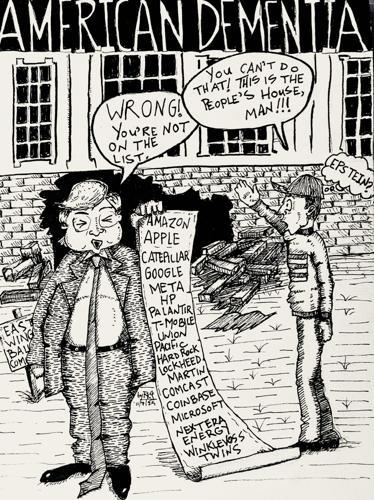 AMERICAN DEMENTIA
YOU CAN'T DO
THAT! THIS IS THE
PEOPLE'S HOUSE,
MAN!!!
WRONG!
YOU'RE NOT
ON THE
LIST.
EPSTEIN?
AMAZON
APPLE
CATERPILLAR
GOOGLE
META
HP
PALANTIR
T-MOBILE
UNION
PACIFIC
HARD ROCK
LOCKHEED
MARTIN
COMCAST
COINBASE
MICROSOFT
NEXTERA
ENERGY
WINKLEVOSS
TWINS
EAST
WING
BALL